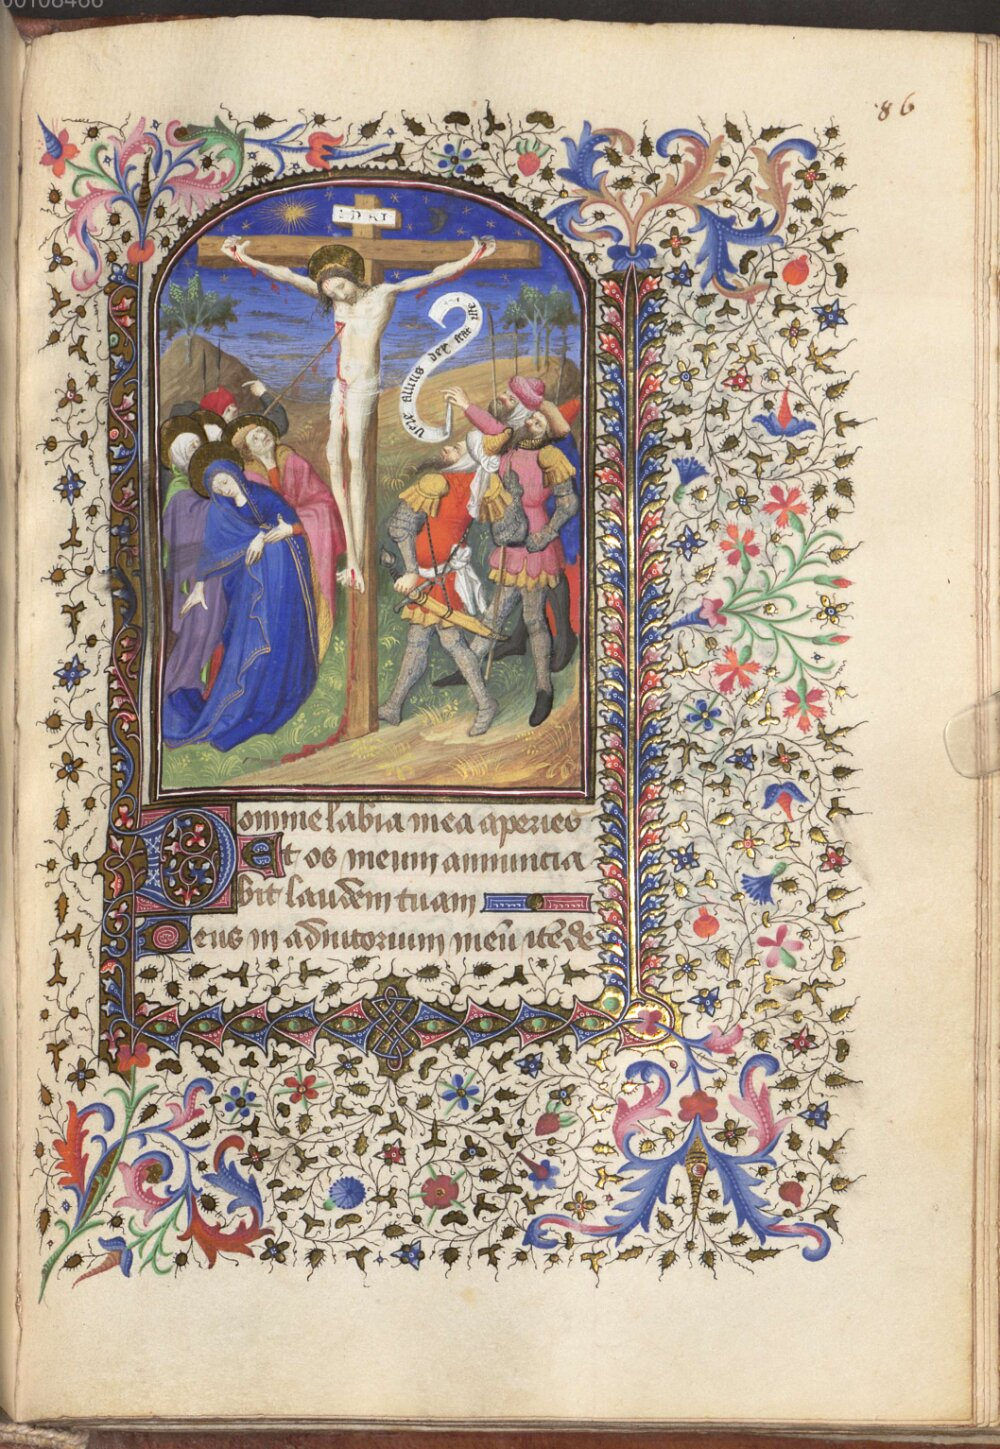 00108466
86
INRI
vere filius dei erat iste
Domine labia mea aperies
Et os meum annuncia
bit laudem tuam
Deus in adiutorium meū ītēde